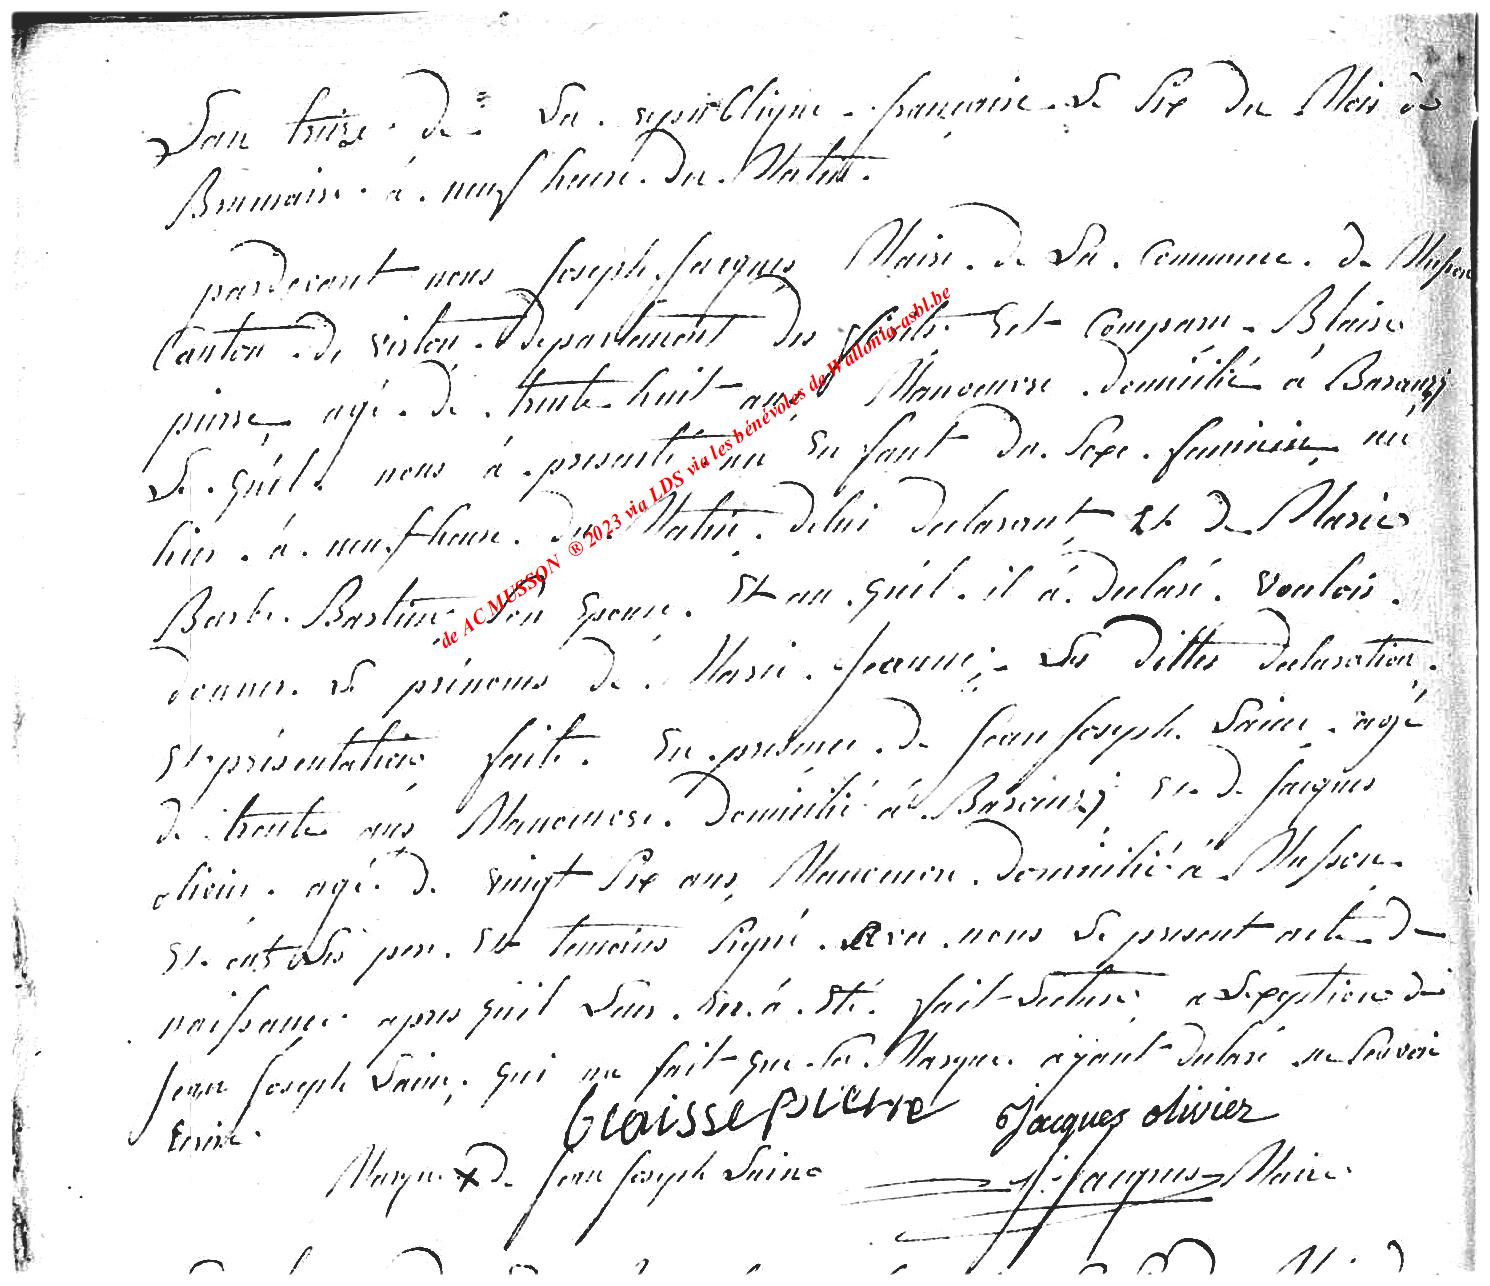 Lan treize de La republique française Le Six du Mois de
Brumaire à neuf heure du Matin
pardevant nous Joseph Jacques Maire de La Commune de Musson
Canton de virton departement des forêts Est Comparu Blaise
pierre agé de trente huit ans Manoeuvre domicilié à Baranzi
Le quel nous à presenté un Enfant du Sexe feminin né
hier à neuf heure du Matin delui declarant Et de Marie
Barbe Bastin Son Epouse Et au quel il à declaré vouloir
donner Le prénoms de Marie Jeanne Les dittes declaration
Et présentation faite En presence de Jean Joseph Laine agé
de trente ans Manoeuvre domicilié à Baranzi et de Jacques
olivier agé de vingt Six ans Manoeuvre domicilié à Musson
Et ont Les pere Et temoins Signé avec nous Le present acte de
naissance apres quil Leur En à Eté fait Lecture a Lexeption de
Jean Joseph Laine qui ne fait que Sa Marque ayant declaré ne Savoir
Ecrire
blaisse pierre Jacques olivier
Marque X de Jean Joseph Laine J. Jacques Maire
de AC MUSSON ® 2023 via LDS via les bénévoles de Wallonia-asbl.be